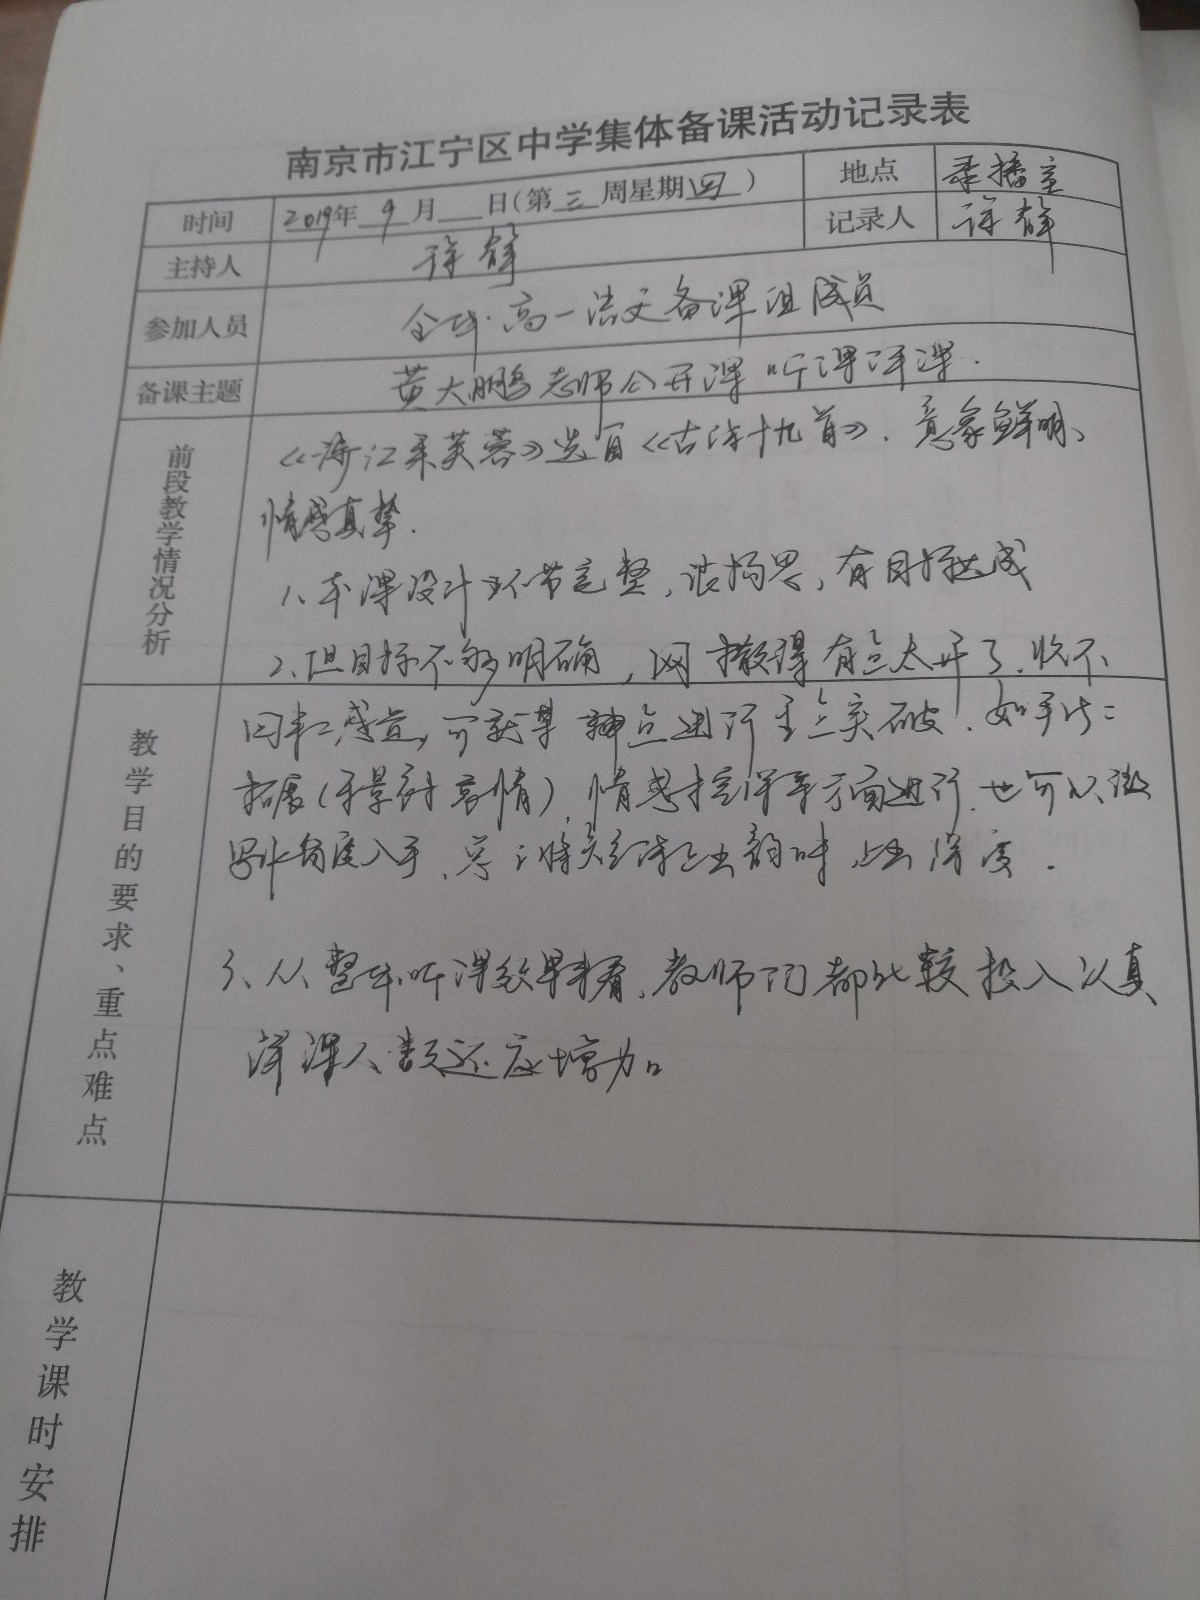 南京市江宁区中学集体备课活动记录表
时间 2019年 9月 日(第三周星期四) 地点 录播室
主持人 徐静 记录人 徐静
参加人员 全体高一语文备课组成员
备课主题 黄大鹏老师公开课听课评课.
前段教学情况分析
《涉江采芙蓉》选自《古诗十九首》.意象鲜明、
情感真挚.
1、本课设计环节完整,很构思,有目标达成
2、但目标不够明确,网撒得有点太开了,收不
教学目的要求、重点难点
回来之感觉,可就某 点进行重点突破.如手法之
拓展(乐景衬哀情),情感挖掘等方面进行,也可以微
写作角度入手, 诗上出韵味,上出深度.
3、从整体听课效果来看,教师们都比较投入认真
评课人数还应增加
教学课时安排